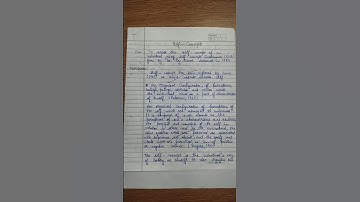 Self-Concept
Aim to assess the self concept of an
individual using Self concept Questionnaire (SCQ)
given by Dr. Raj Kumar Saraswat in 1984
Introduction
Self concept has been referred by Lowe
as one's attitude towards self
An Organized Configuration of Perceptions,
beliefs, feelings, attitudes and values which
the individual views as a part or characteristics
of himself
The organized configuration of perceptions of
the self which are admissible to awareness
It is composed of such elements as the
perceptions of one's characteristics and abilities
the percepts and concepts of the self in
relation to others and to the environment, the
value qualities which are perceived as associated
with experiences and objects and the goals and
ideals which are perceived as having positive
or negative valence (Rogers, 1951)
The self concept is the individual's way
of looking at himself. It also signifies his